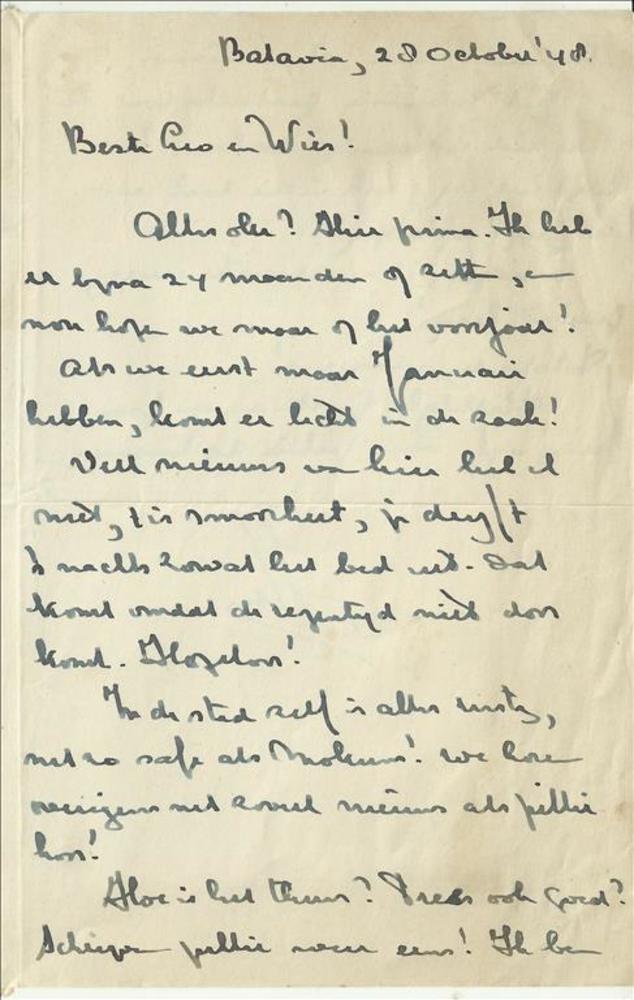 Batavia, 28 October '48.
Beste Geo en Wies!
Alles oke? Hier prima. Ik heb
er byna 24 maanden op zitten, en
nou hopen we maar op het voorjaar!
Als we eerst maar Januari
hebben, komt er licht in de zaak!
Veel nieuws van hier heb ik
niet, 't is smoorheet, je dryft
's nachts zowat het bed uit. Dat
komt omdat de regentyd niet door
komt. Hopeloos!
In de stad zelf is alles rustig,
net zo safe als Mokum! We horen
overigens net zoveel nieuws als jullie
hoor!
Hoe is het thuis? Trees ook goed?
Schrijven jullie weer eens! Ik ben